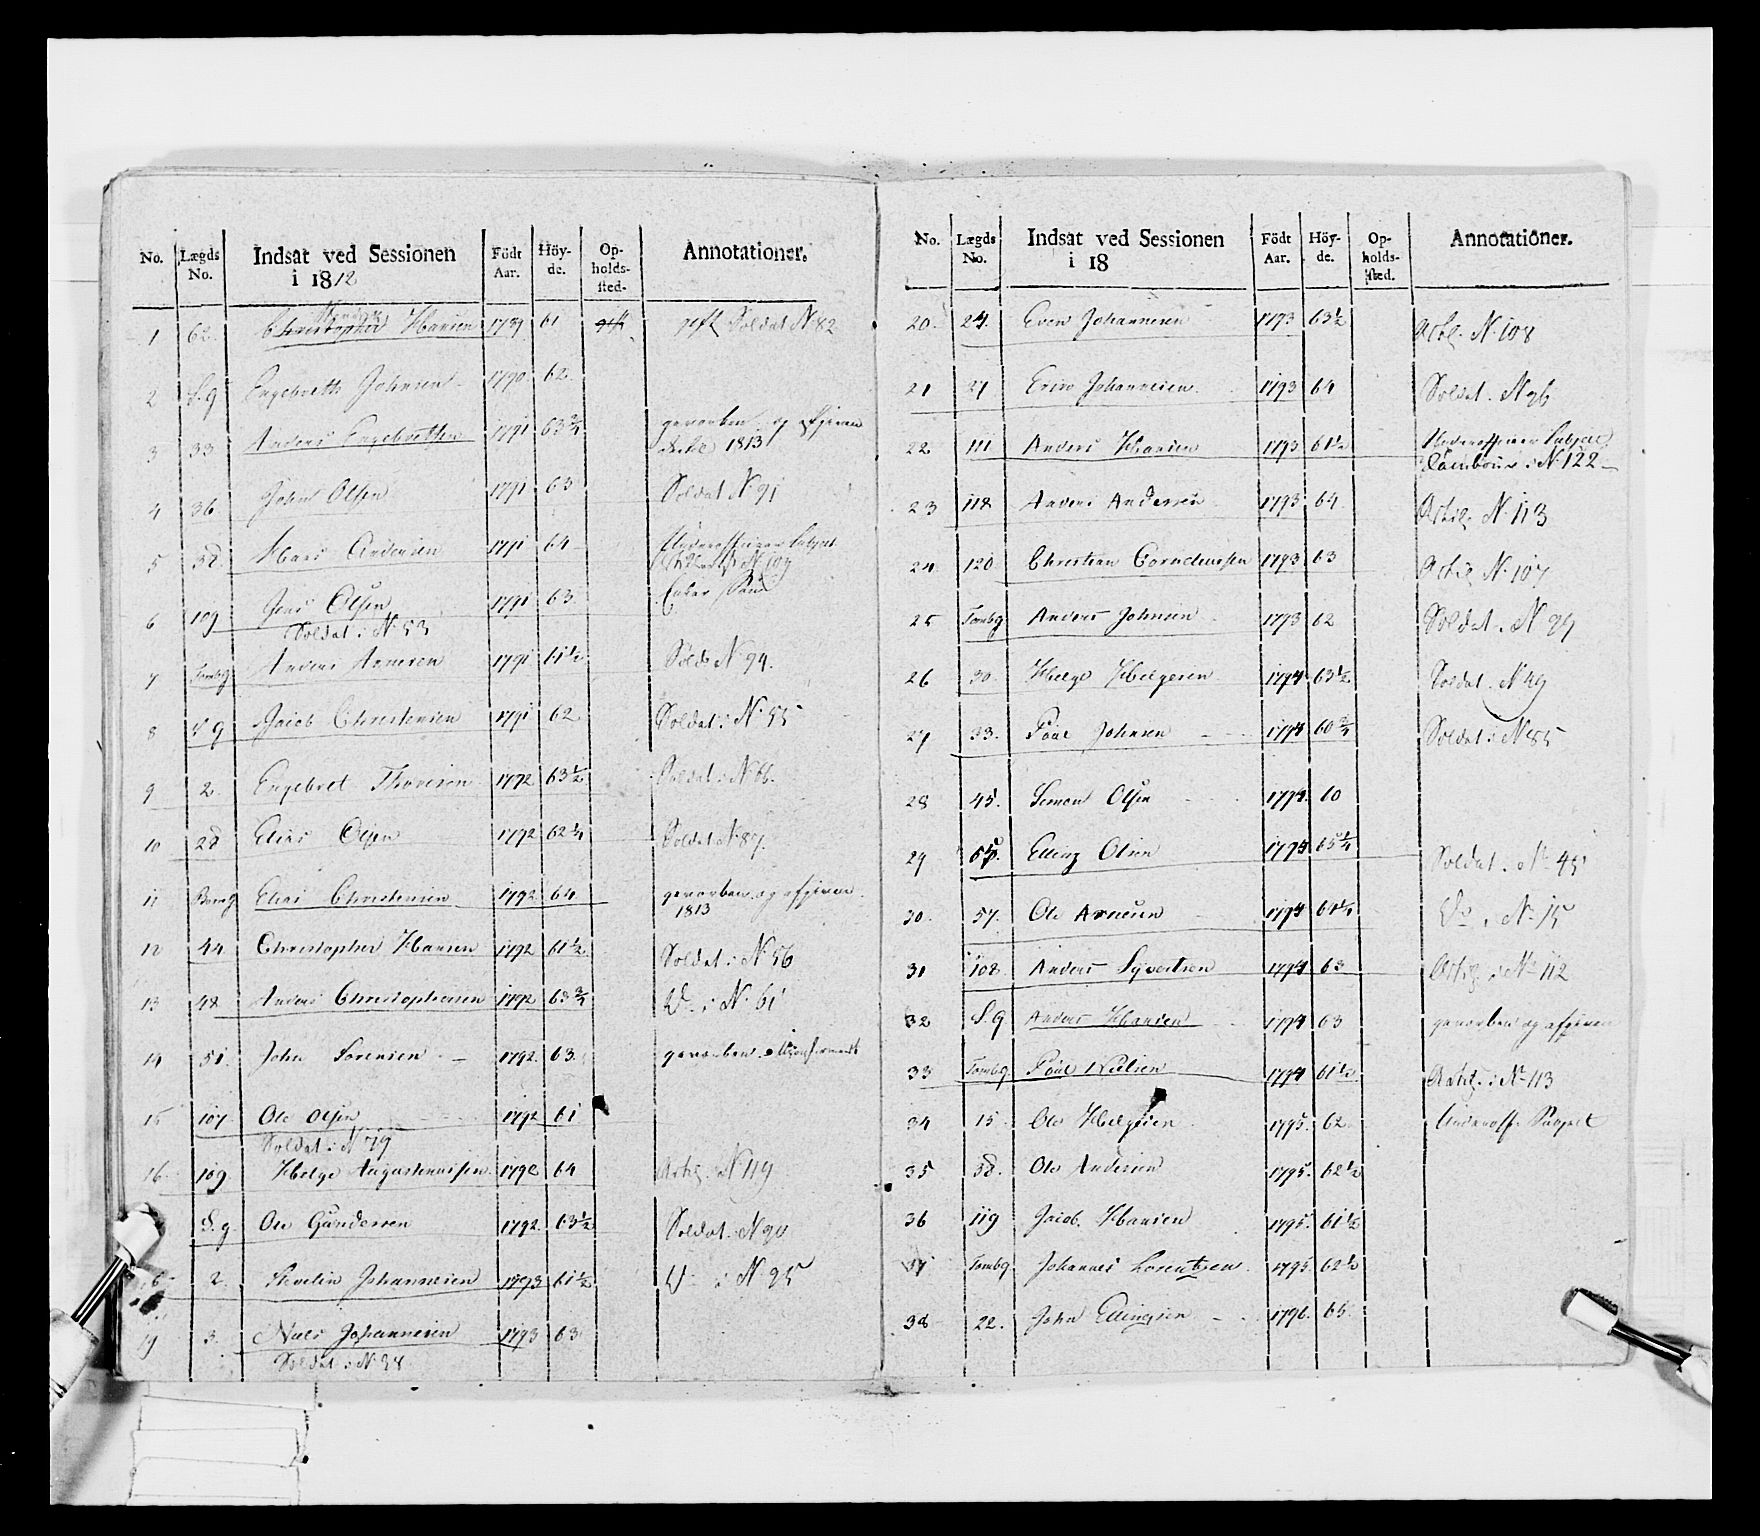 No. Lægds No. Indsat ved Sessionen i 1812 Födt Aar. Höyde. Opholdssted. Annotationer.
1 62. Christopher Hansen 1789 61 gift Soldat N 82
2 S.g Engebreth Johnsen 1790 62
3 33 Anders Engebretsen 1791 63 3/4 gevorben og afgiven
1813
4 36 John Olsen 1791 63 Soldat N 91
5 38 Hans Andersen 1791 64 Underofficeer Subject
N 109
6 109 Jens Olsen 1791 63
Soldat i N. 53
7 Tombg Anders Arnesen 1791 61 1/2 Sold. N 94.
8 S g Jacob Christensen 1791 62 Soldat i N. 55
9 2. Engebret Thoresen 1792 63 1/2 Soldat i N 66.
10 28 Elias Olsen 1792 62 3/4 Soldat N 87.
11 Elias Christensen 1792 64 gevorben og afgiven
1813
12 44 Christopher Hansen 1792 61 1/2 Soldat i N 56
13 48 Anders Christophersen 1792 63 3/4 Do i N. 61
14 51. John Sorensen 1792. 63. gevorben
15 107 Ole Olsen 1792 61
Soldat i N 79
16. 109 Helge Augustenusen 1792 64 Artig. N 119
S.g. Ole Gundersen 1792. 63 1/2 Soldat i N 90
2. Johannesen 1793 61 1/2 Do i N 95
19 3. Niels Johannesen 1793 63
Soldat i N. 38
No. Lægds No. Indsat ved Sessionen i 18 Födt Aar. Höyde. Opholdssted. Annotationer.
20. 24. Even Johannesen 1793 63 1/2 Artig. N. 108
21 21 Johannesen 1793 64 Soldat. N 96
22 111 Anders Hansen 1793 61 1/2 Underofficeer Subject
Tambour i N. 122
23 118 Anders Andersen 1793 64 Artig. N. 113
24 120 Christian Corneliussen 1793 63 Artig N. 107
25 Tombg Anders Johnsen 1793 62 Soldat. N 99
26 30. Helge Helgesen 1794 63 1/2 Soldat. N 49
27 33. Poul Johnsen 1794 60 3/4 Soldat i N 85
28 45. Simon Olsen 1794. 60
29 Elling Olsen 1794 65 1/4 Soldat. No 45
30. 57. Ole Arnesen 1794 61 1/4 Do i No 15
31 108. Anders Syvertsen 1794 63 Artig. i No 112
32 S.g Anders Hansen 1794 63 gevorben og afgiven
33 Tombg. Poul Nielsen 1794 61 1/2 Artig. i No 113
34 15 Ole Helgesen 1795. 62 Underoff. Subject
35 38. Ole Andersen 1795. 62 1/2
36 119 Jacob Hansen 1795. 61 1/2
37 Tombg. Johannes Lorentzen 1795 62 1/2
38 22. John Ellingsen 1796. 65